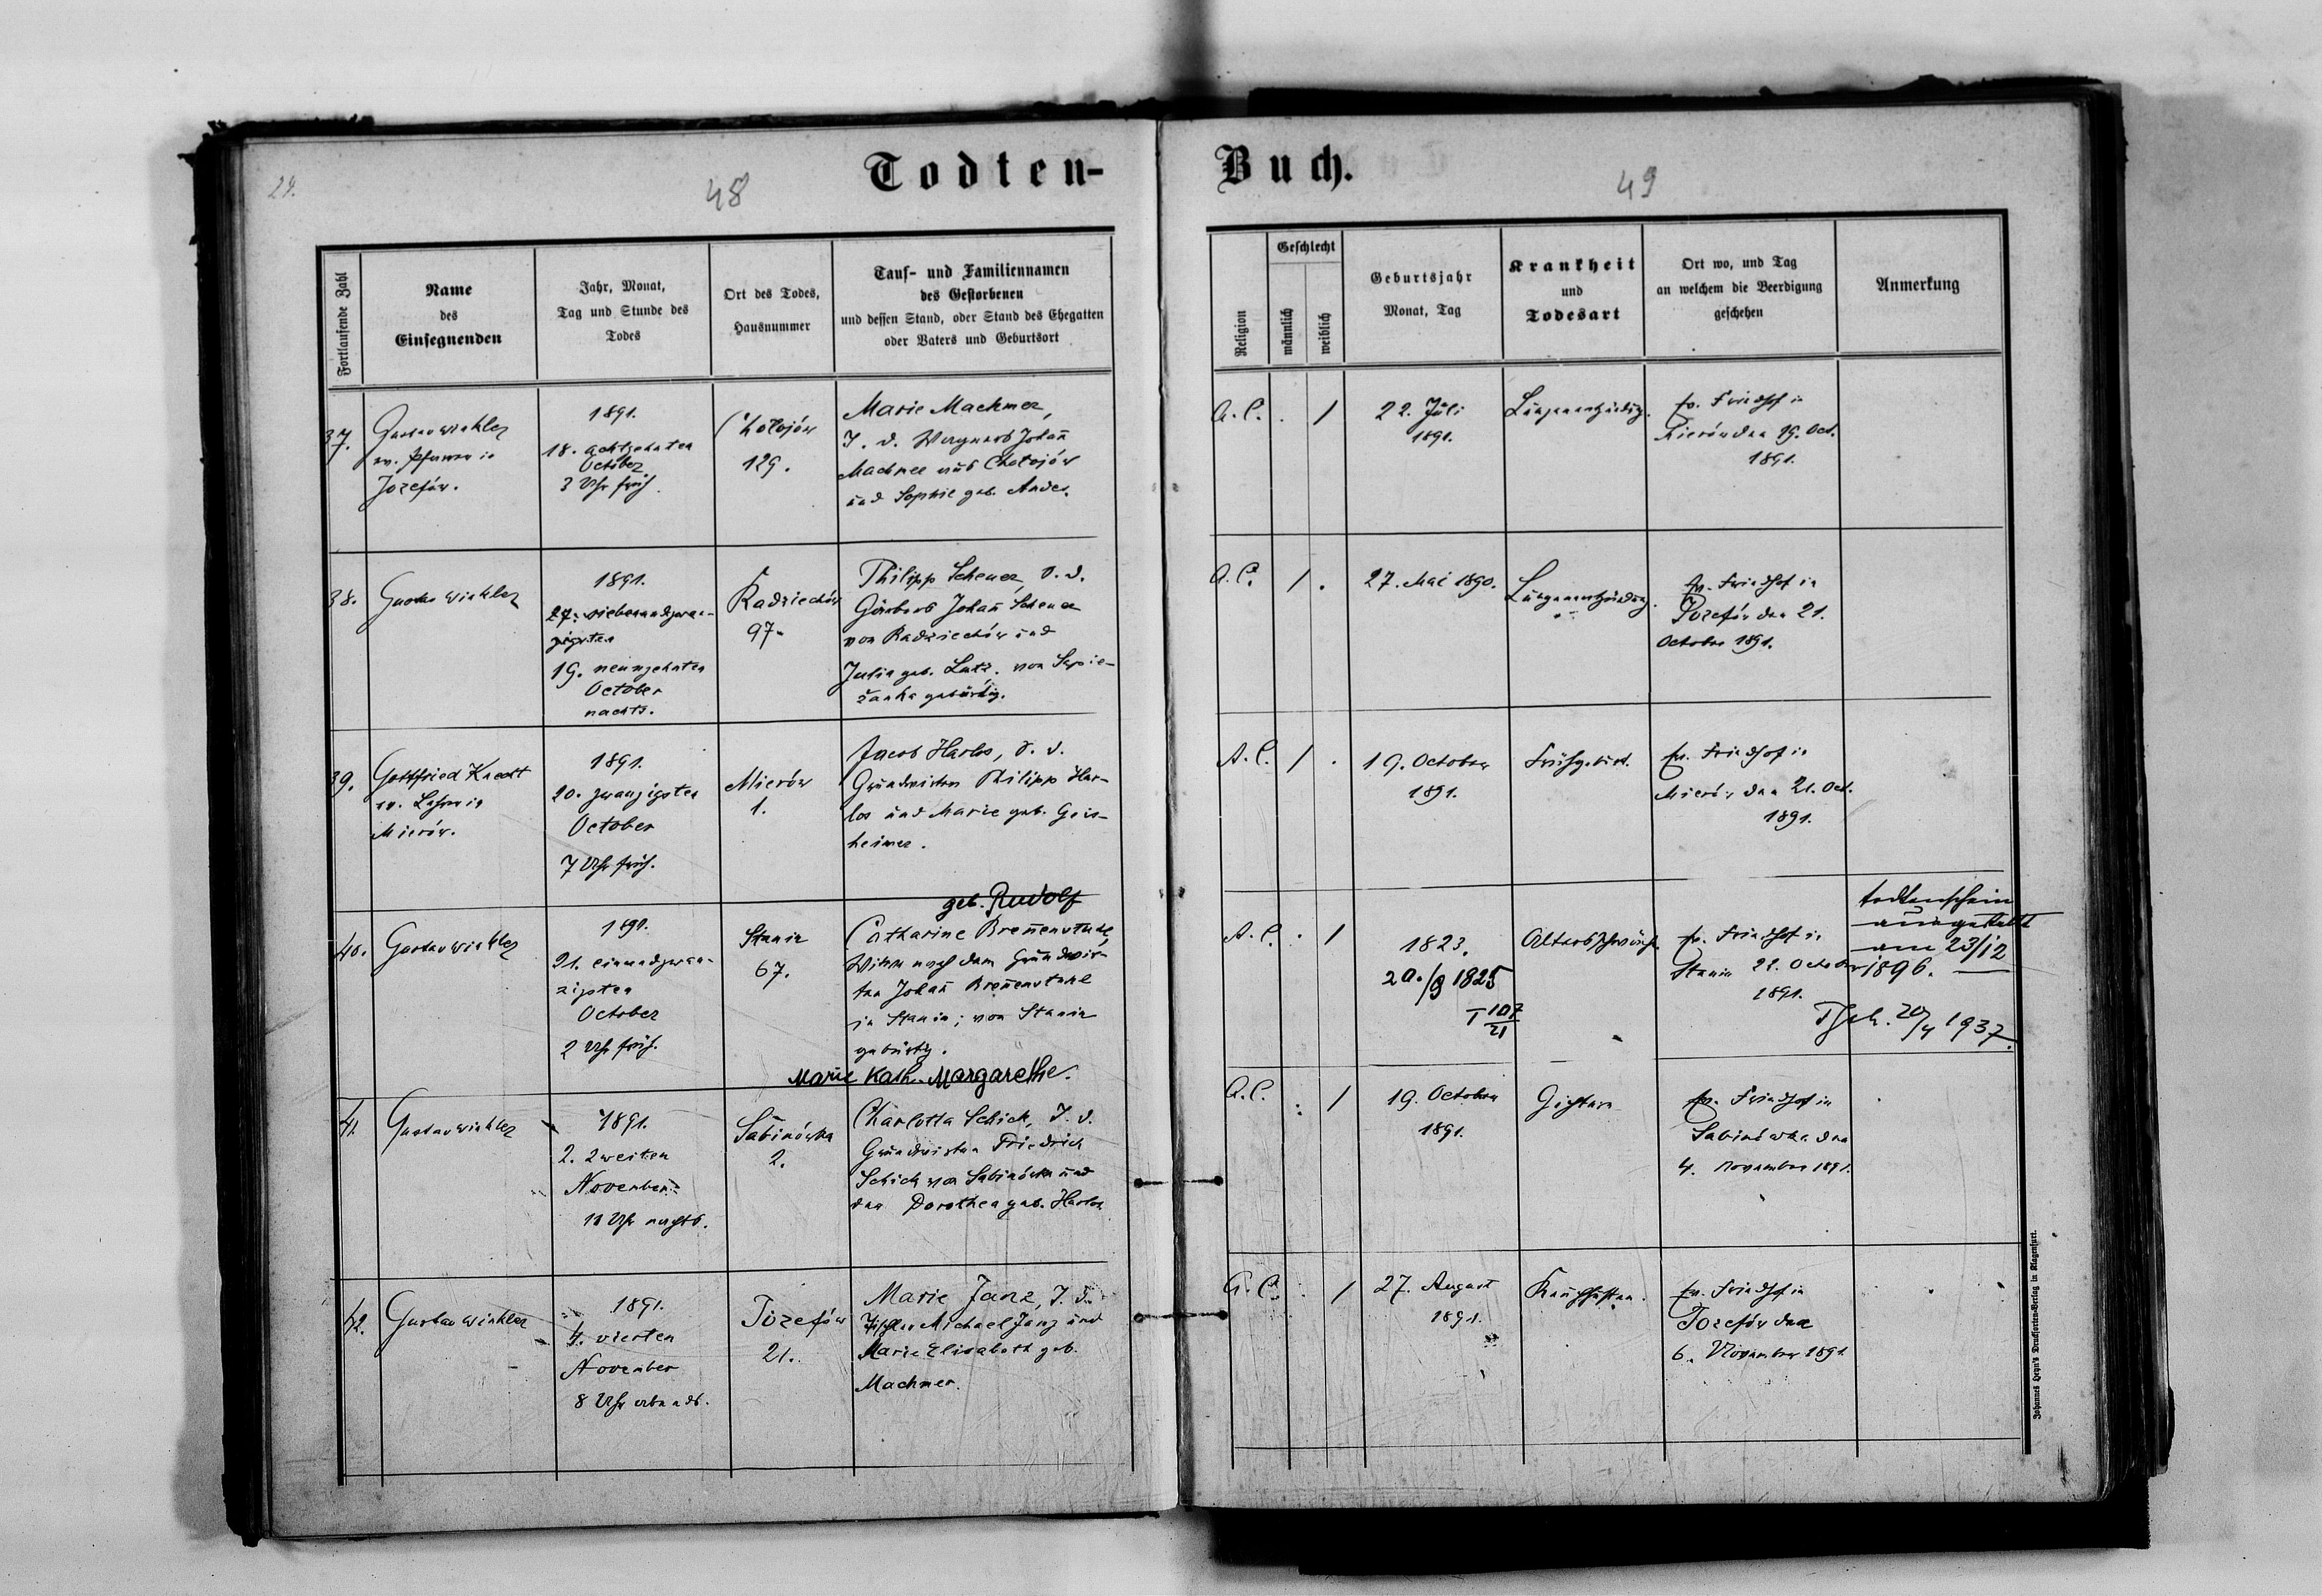 29.
48
Todten-
Buch.
49
Fortlaufende Zahl
Name
des
Einsegnenden
Jahr, Monat,
Tag und Stunde des
Todes
Ort des Todes,
Hausnummer
Tauf- und Familiennamen
des Gestorbenen
und dessen Stand, oder Stand des Ehegatten
oder Vaters und Geburtsort
Religion
Geschlecht
männlich
weiblich
Geburtsjahr
Monat, Tag
Krankheit
und
Todesart
Ort wo, und Tag
an welchem die Beerdigung
geschehen
Anmerkung
37.
Gustav Winkler
ev. Pfarrer in
Jozefów.
1891.
18. achtzehnten
October
3 Uhr früh.
Chołojów
129.
Marie Machmer,
T. d. Johañ
Machmer aus Chołojów
und Sophie geb. Andes.
A. C. . /
22. Juli
1891.
Lungenentzündg.
ev. Friedhof in
den 19. Oct.
1891.
38.
Gustav Winkler
1891.
27. siebenundzwan-
zigsten
19. neunzehnten
October
nachts.
Radziechów
97.
Philipp Scheuer, S. d.
Johañ Scheuer
von Radziechów und
Julia geb. Lutz, von Sapie-
żanka gebürtig.
A. C. / .
27. Mai 1890.
Lungenentzündung.
ev. Friedhof in
Jozefów den 21.
October 1891.
39.
Gottfried Knecht
ev. Lehrer in
Mierów.
1891.
20. zwanzigsten
October
7 Uhr früh.
Mierów
1.
Jacob Harlos, S. d.
Grundwirten Philipp Har-
los und Marie geb. Geis-
heimer.
A. C. / .
19. October
1891.
Frühgeburt.
ev. Friedhof in
Mierów den 21. Oct.
1891.
40.
Gustav Winkler
1891.
21. einundzwan-
zigsten
October
2 Uhr früh.
Stanin
67.
geb. Rudolf
Catharine Breñenstuhl,
Witwe nach dem Grundwir-
ten Johañ Breñenstuhl
in Stanin; von Stanin
gebürtig.
A. C. . /
1823.
20./9 1825
T 107/21
Altersschwäche.
ev. Friedhof in
Stanin 22. October
1891.
Todtenschein
ausgestellt
am 23/12
1896.
Tsch. 20/4 1937.
41.
Gustav Winkler
1891.
2. zweiten
November
11 Uhr nachts.
Sabinówka
2.
Marie Kath. Margarethe.
Charlotta Schick, T. d.
Grundwirten Friedrich
Schick von Sabinówka und
der Dorothea geb. Harlos
A. C. . /
19. October
1891.
Gichter
ev. Friedhof in
Sabinówka den
4. November 1891.
42.
Gustav Winkler
1891.
4. vierten
November
8 Uhr abends.
Jozefów
21.
Marie Janz, T. d.
Tischler Michael Janz und
Marie Elisabeth geb.
Machmer.
A. C. . /
27. August
1891.
Keuchhusten.
ev. Friedhof in
Jozefów den
6. November 1891
Johannes Heyn's Drucksorten-Verlag in Klagenfurt.